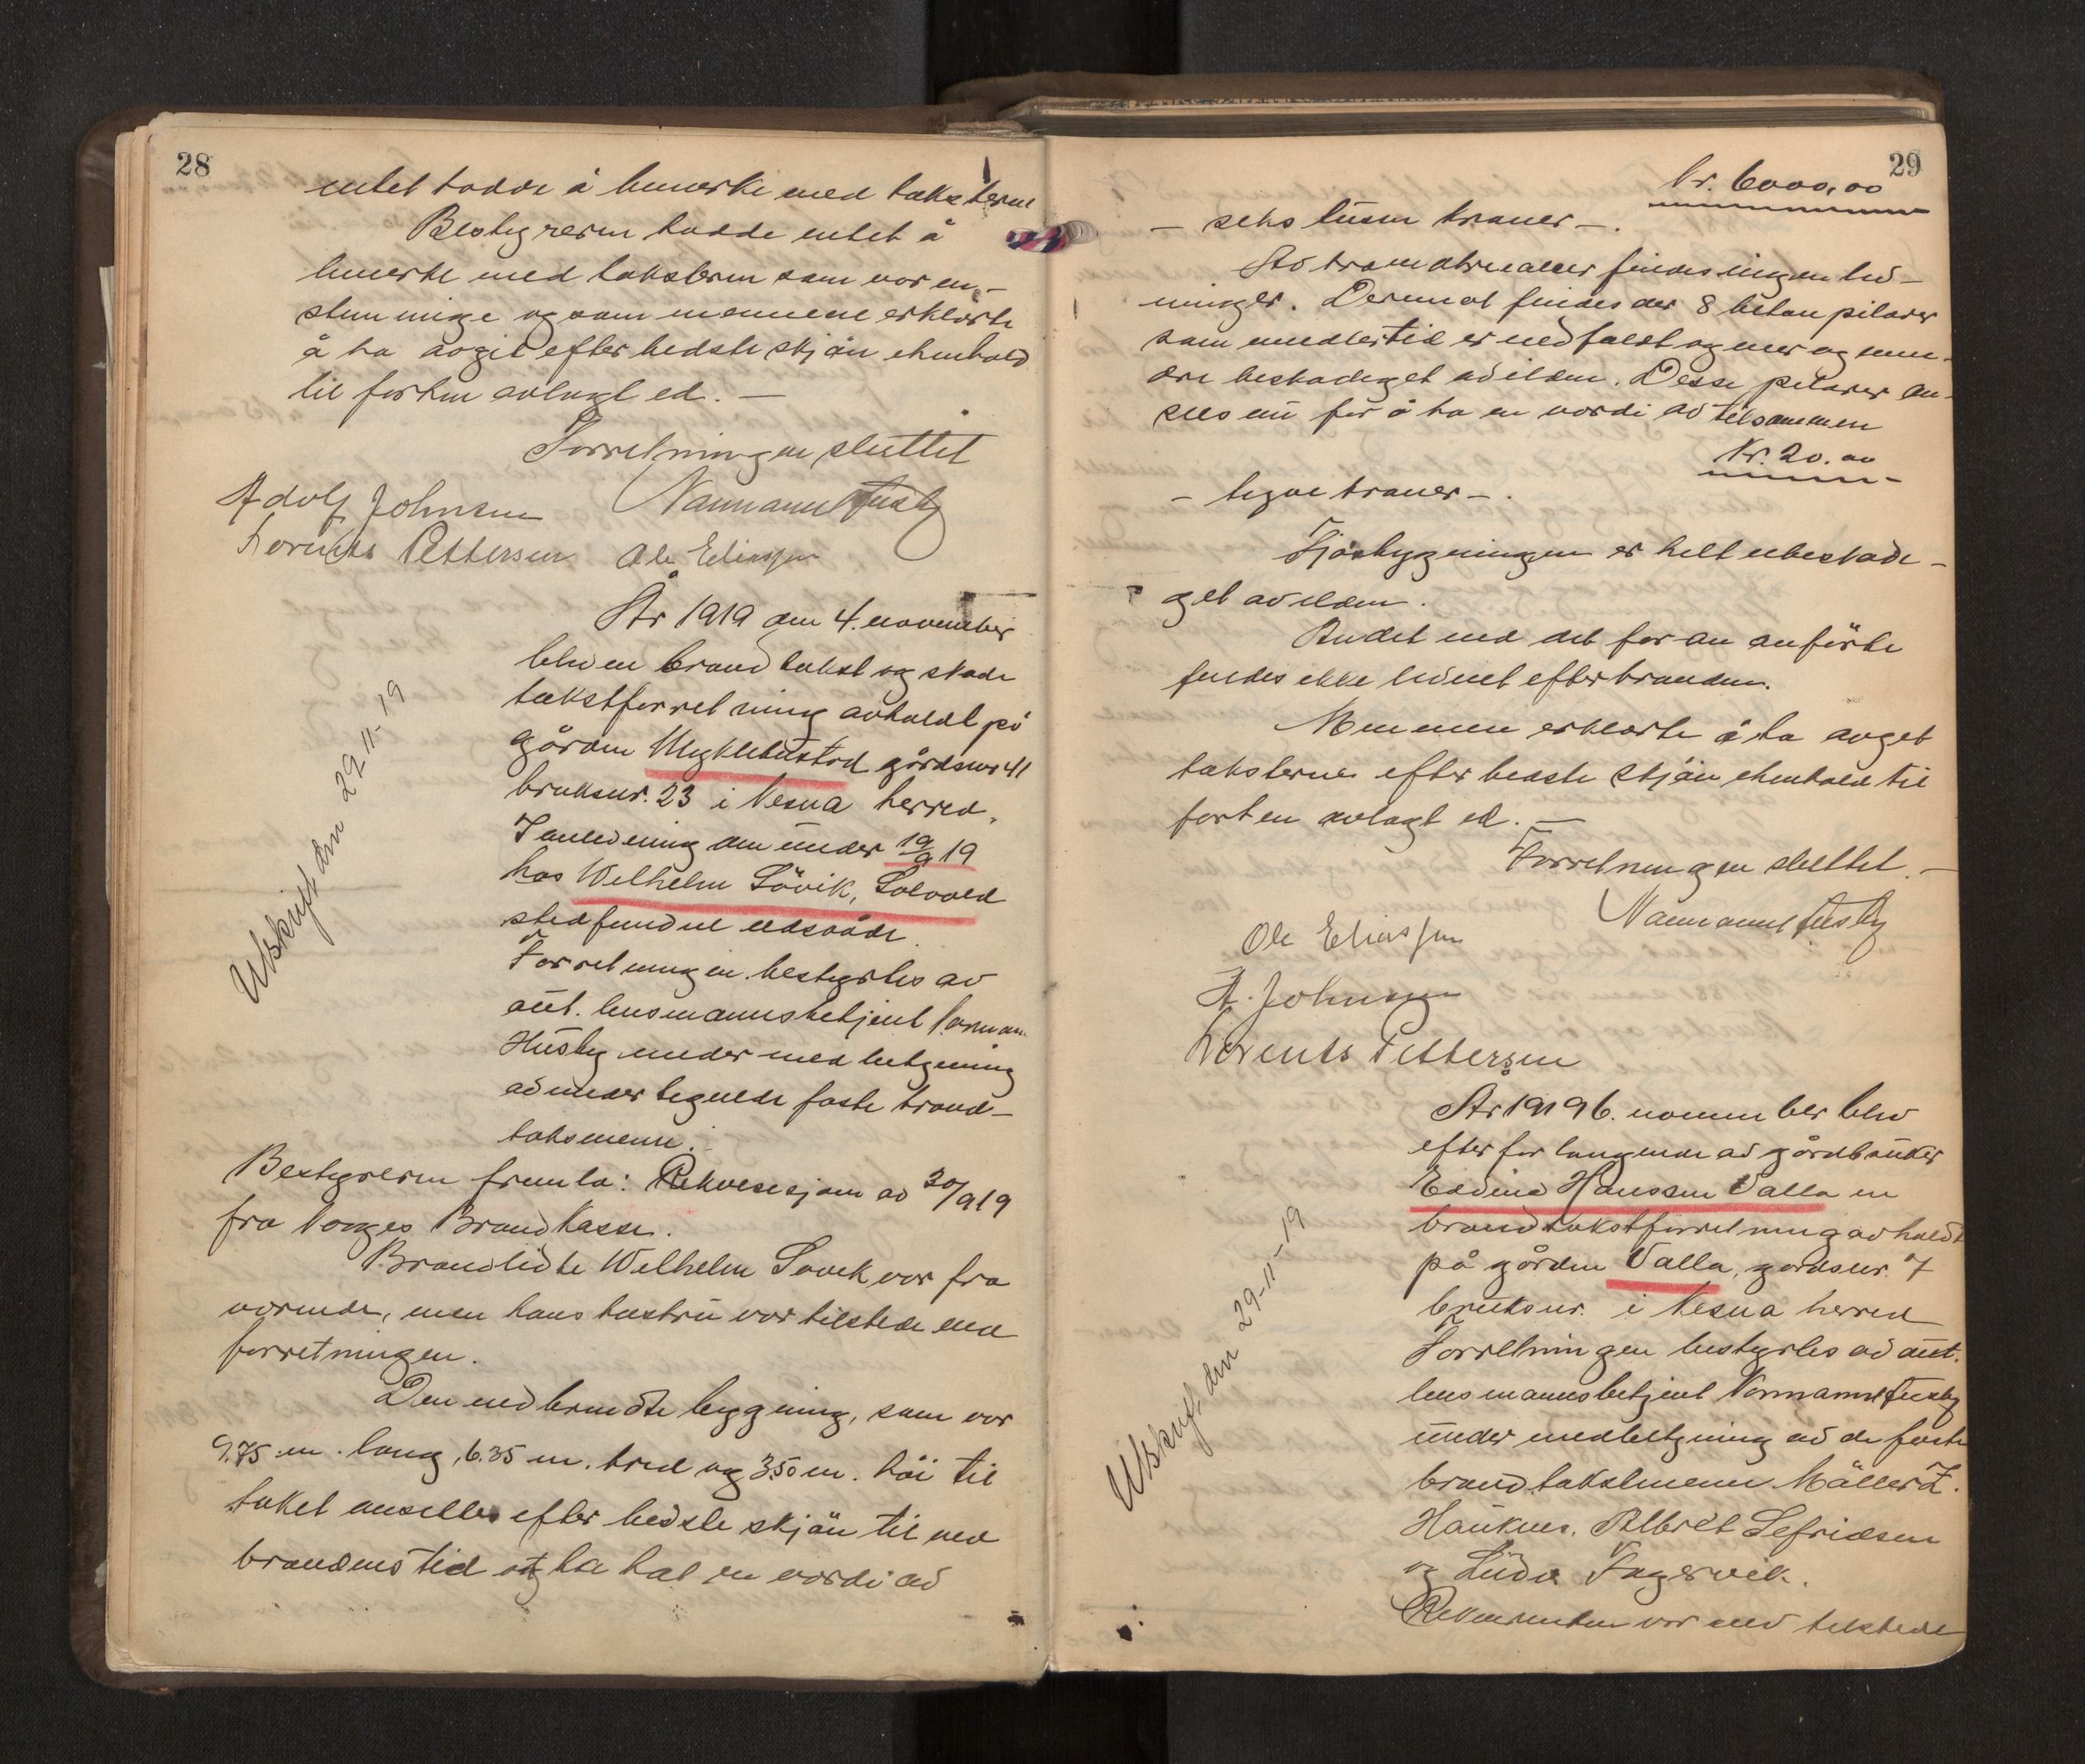 28
intet hadde å bemerke med taksterne
Bestyreren hadde intet å
bemerke med taksterne som var en-
stemmige og som mennene erklærte
å ha avgit efter bedste skjön i henhold
til for ham avlagt ed. —
Forretningen sluttet
Adolf Johnsen Normann Husby
Lorents Pettersen Ole Eliassen
År 1919 den 4. november
blev en brandtakst og skade
takstforretning avholdt på
gården Myklebustad gårdsnr 41
bruksnr. 23 i Nesna herred,
I anledning den under 19/9 19
hos Wilhelm Sövik, Solvold
stedfundne ildsvåde.
Forretningen bestyrtes av
aut. lensmannsbetjent Norman
Husby under medbetjening
av undertegnede faste brand-
taksmenn.
Utskrift den 29-11-19
Bestyreren fremla: Rekvisisjon av 30/9 19
fra Norges Brandkasse.
Brandlidte Wilhelm Sövik var fra
værende, men hans hustru var tilstede ved
forretningen.
Den nedbrendte bygning, som var
9,75 m. lang, 6.35 m. bred og 3,50 m. höi til
taket ansettes efter bedste skjön til ved
brandens tid at ha hat en værdi av
29
kr. 6000,00
— seks tusen kroner —.
Av brandruiner findes ingen lev-
ninger. Derimot findes der 8 betonpilarer
som imidlertid er nedfaldt og mer og min-
dre beskadiget av ilden. Disse pilarer an-
sees nu for å ha en værdi av tilsammen
Kr. 20.00
— tyve kroner —.
Fjösbygningen er helt ubeskadi-
get av ilden.
Andet end det foran anförte
findes ikke levnet efter branden.
Mennene erklærte å ha avget
taksterne efter bedste skjön i henhold til
forten avlagt ed. —
Forretningen sluttet. —
Normann Husby
Ole Eliassen
A. Johnsen
Lorents Pettersen
År 1919 6. november blev
efter forlangende av gårdbruker
Edvind Hanssen Valla en
brandtakstforretning avholdt
på gården Valla, gårdsnr. 7
bruksnr. i Nesna herred
Forretningen bestyrtes av aut.
lensmannsbetjent Normann Husby
under medbetjening av de faste
brandtakstmenn Möller Z.
Hauknes, Albret Sefridsen
og Ludv. Fagervik.
Utskrift den 29-11-19
Rekvirenten var selv tilstede